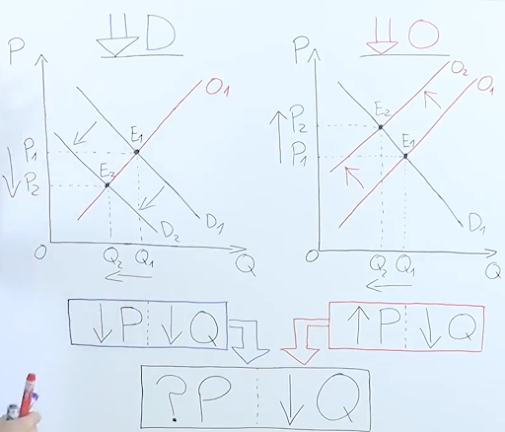 ⇓ D
P
O₁
E₁
↓ P₁
P₂
E₂
D₂ D₁
O
Q₂ Q₁
Q
←
⇓ O
P
O₂
O₁
E₂
↑ P₂
P₁
E₁
D₁
O
Q₂ Q₁
Q
←
↓ P ↓ Q
↑ P ↓ Q
? P ↓ Q